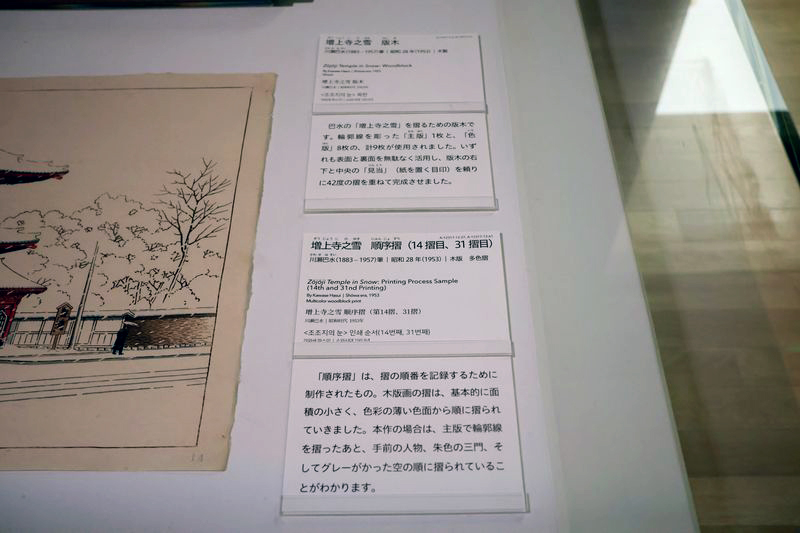 増上寺之雪　版木
川瀬巴水(1883－1957)筆｜昭和 28 年(1953)｜木製
Zōjōji Temple in Snow: Woodblock
By Kawase Hasui｜Showa era, 1953
Wood
増上寺之雪 版木
<조조지의 눈> 목판
巴水の「増上寺之雪」を摺るための版木で
す。輪郭線を彫った「主版」1枚と、「色
版」8枚の、計9枚が使用されました。いず
れも表面と裏面を無駄なく活用し、版木の右
下と中央の「見当」（紙を置く目印）を頼り
に42度の摺を重ねて完成させました。
ぞうじょうじ の ゆき　じゅんじょ ずり
増上寺之雪　順序摺（14 摺目、31 摺目）
川瀬巴水(1883－1957)筆｜昭和 28 年(1953)｜木版　多色摺
Zōjōji Temple in Snow: Printing Process Sample
(14th and 31nd Printing)
By Kawase Hasui｜Showa era, 1953
Multicolor woodblock print
増上寺之雪 順序摺（第14摺、31摺）
川瀬巴水｜昭和時代 1953年
<조조지의 눈> 인쇄 순서(14번째, 31번째)
「順序摺」は、摺の順番を記録するために
制作されたもの。木版画の摺は、基本的に面
積の小さく、色彩の薄い色面から順に摺られ
ていきました。本作の場合は、主版で輪郭線
を摺ったあと、手前の人物、朱色の三門、そ
してグレーがかった空の順に摺られているこ
とがわかります。
14